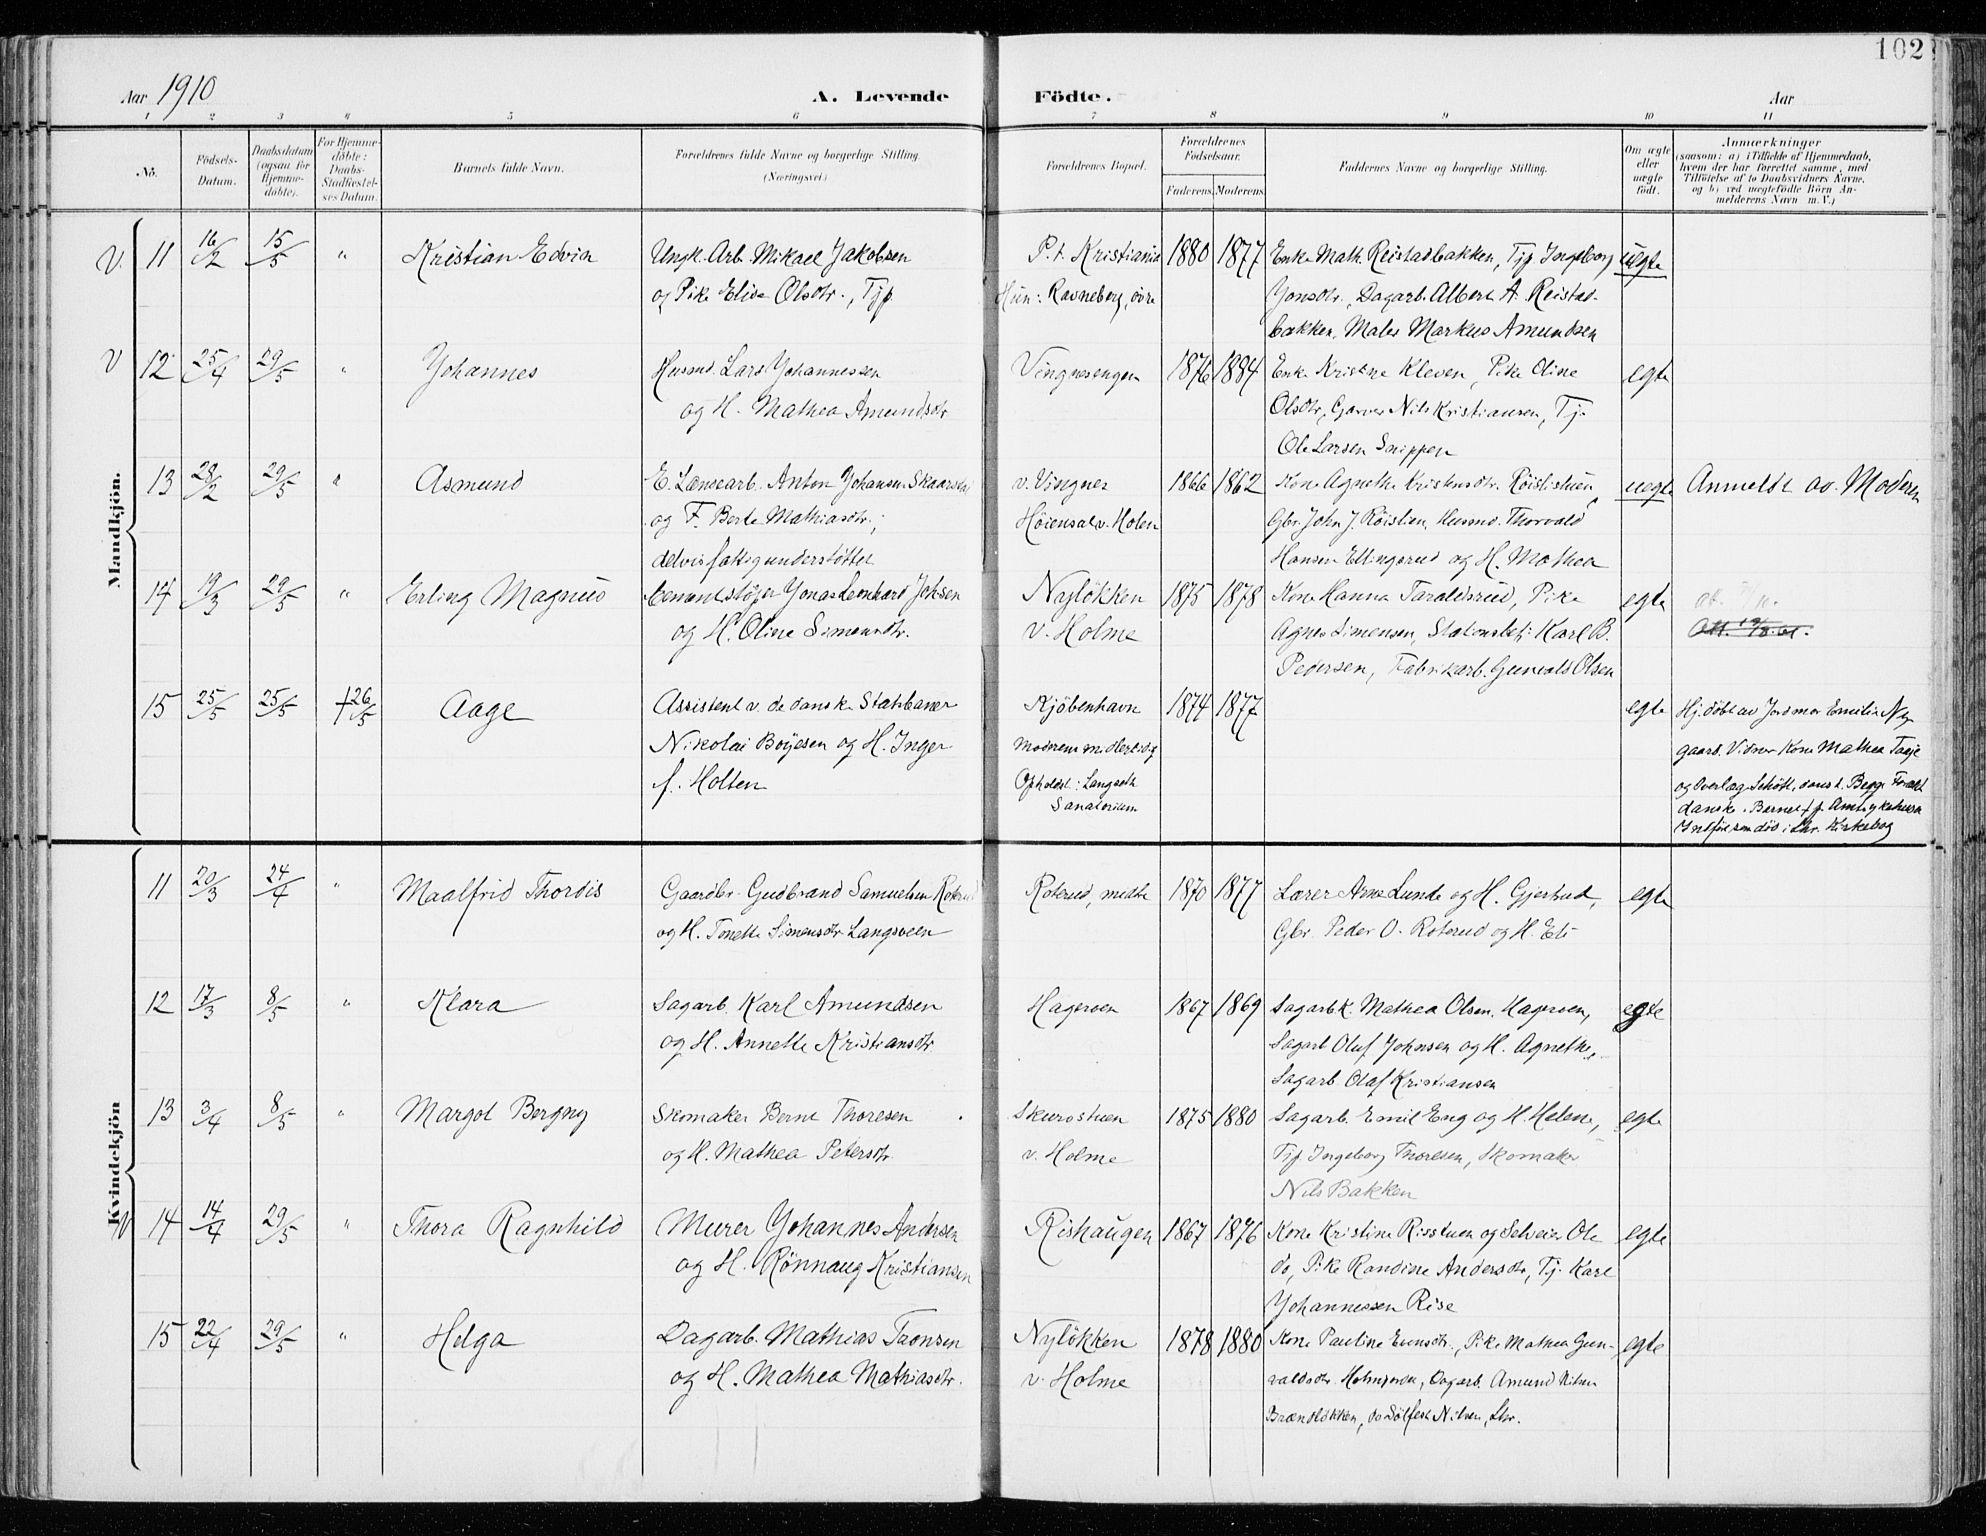 102
Aar 1910
A. Levende Födte.
Aar
1 2 3 4 5 6 7 8 9 10 11
No.
Födsels-Datum.
Daabsdatum (ogsaa for Hjemme-døbte).
For Hjemme-døbte: Daabs-Stadfæstelses Datum.
Barnets fulde Navn.
Forældrenes fulde Navne og borgerlige Stilling. (Næringsvei)
Forældrenes Bopæl.
Forældrenes Fødselsaar.
Faderens. Moderens.
Faddernes Navne og borgerlige Stilling.
Om ægte eller uægte født.
Anmærkninger
(saasom: a) i Tilfælde af Hjemmedaab, hvem der har forrettet samme, med Tilføielse af to Daabsvidners Navne, og b) ved uægtefödte Börn Anmelderens Navn m. V.)
Mandkjön.
V. 11 16/2 15/5 " Kristian Edvin
Ungk. Arb. Mikael Jakobsen
og Pike Elise Olsdtr., Tjp.
P.t. Kristiania
Hun: Ravneberg, övre
1880 1877
Enke Math. Reistadbakken, Tjp Ingeborg
Jonsdtr., Dagarb. Albert A. Reistad-
bakken, Maler Markus Amundsen
uegte
V 12 25/4 29/5 " Johannes
Husmd. Lars Johannessen
og H. Mathea Amundsdtr
Vingnesengen
1876 1884
Enke Kristine Kleven, Pike Oline
Olsdtr, Garver Nils Kristiansen, Tj.
Ole Larsen Snippen
egte
13 28/2 29/5 " Asmund
E. Lænsearb. Anton Johansen Skaarstad
og F. Berte Mathiasdtr.;
delvis fattigunderstöttet
v. Vingnes
Höiensal v. Holen
1866 1862
Kone Agnethe Kristensdtr. Röislistuen
Gbr. John J. Röislien, Husmd. Thorvald
Hansen Ellingsrud og H. Mathea
uegte
Anmeldt av Moderen
14 19/3 29/5 " Erling Magnus
Cementstöper Jonas Leonhard Johsen
og H. Oline Simensdtr.
Nylökken
v. Holme
1875 1878
Kone Hanna Taraldsrud, Pike
Agnes Simensen, Stationsbetj. Karl B.
Pedersen, Fabrikarb. Gunvald Olsen
egte
15 25/5 25/5 † 26/5 Aage
Assistent v. de danske Statsbaner
Nikolai Boÿesen og H. Inger
f. Holten
Kjöbenhavn
Moderens midlertidig
Opholdst: Langseth
Sanatorium
1874 1877
egte
Hj.döbt av Jordmor Emilie Ny-
gaard. Vidner Kone Mathea Taaje
og Overlæge Schött, danst. Begge Foræld
danske. Barnet † p. Amtsykehuset
Indfört som död i Lhr. Kirkebog
Kvindekjön
11 20/3 24/4 " Maalfrid Thordis
Gaardbr. Gudbrand Samuelsen Roterud
og H. Tonette Simensdtr Langsveen
Roterud, midtre
1870 1877
Lærer Arne Lunde og H. Gjertrud,
Gbr. Peder O. Roterud og H. Eli
egte
12 17/3 8/5 " Klara
Sagarb. Karl Amundsen
og H. Annette Kristiansdtr.
Hageroen
1867 1869
Sagarb.k. Mathea Olsen Hageroen,
Sagarb Oluf Johnsen og H. Agnethe,
Sagarb. Olaf Kristiansen
egte
13 3/4 8/5 " Margot Bergny
Skomaker Bernt Thoresen
og H. Mathea Petersdtr.
Skurdstuen
v. Holme
1875 1880
Sagarb. Emil Eng og H. Helene,
Tjp Ingeborg Thoresen, Skomaker
Nils Bakken
egte
V 14 14/4 29/5 " Thora Ragnhild
Murer Johannes Andersen
og H. Rönnaug Kristiansen
Rishaugen
1867 1876
Kone Kristine Risstuen og Selveier Ole
do, Pike Randine Andersdtr, Tj. Karl
Johannessen Rise
egte
15 22/4 29/5 " Helga
Dagarb. Mathias Tronsen
og H. Mathea Mathiasdtr.
Nylökken
v. Holme
1878 1880
Kone Pauline Evensdtr., Pike Mathea Gun-
valdsdtr. Holmjordet, Dagarb. Amund Nilsen
Brændlökken, do Sölfest Nilsen, Lhr.
egte